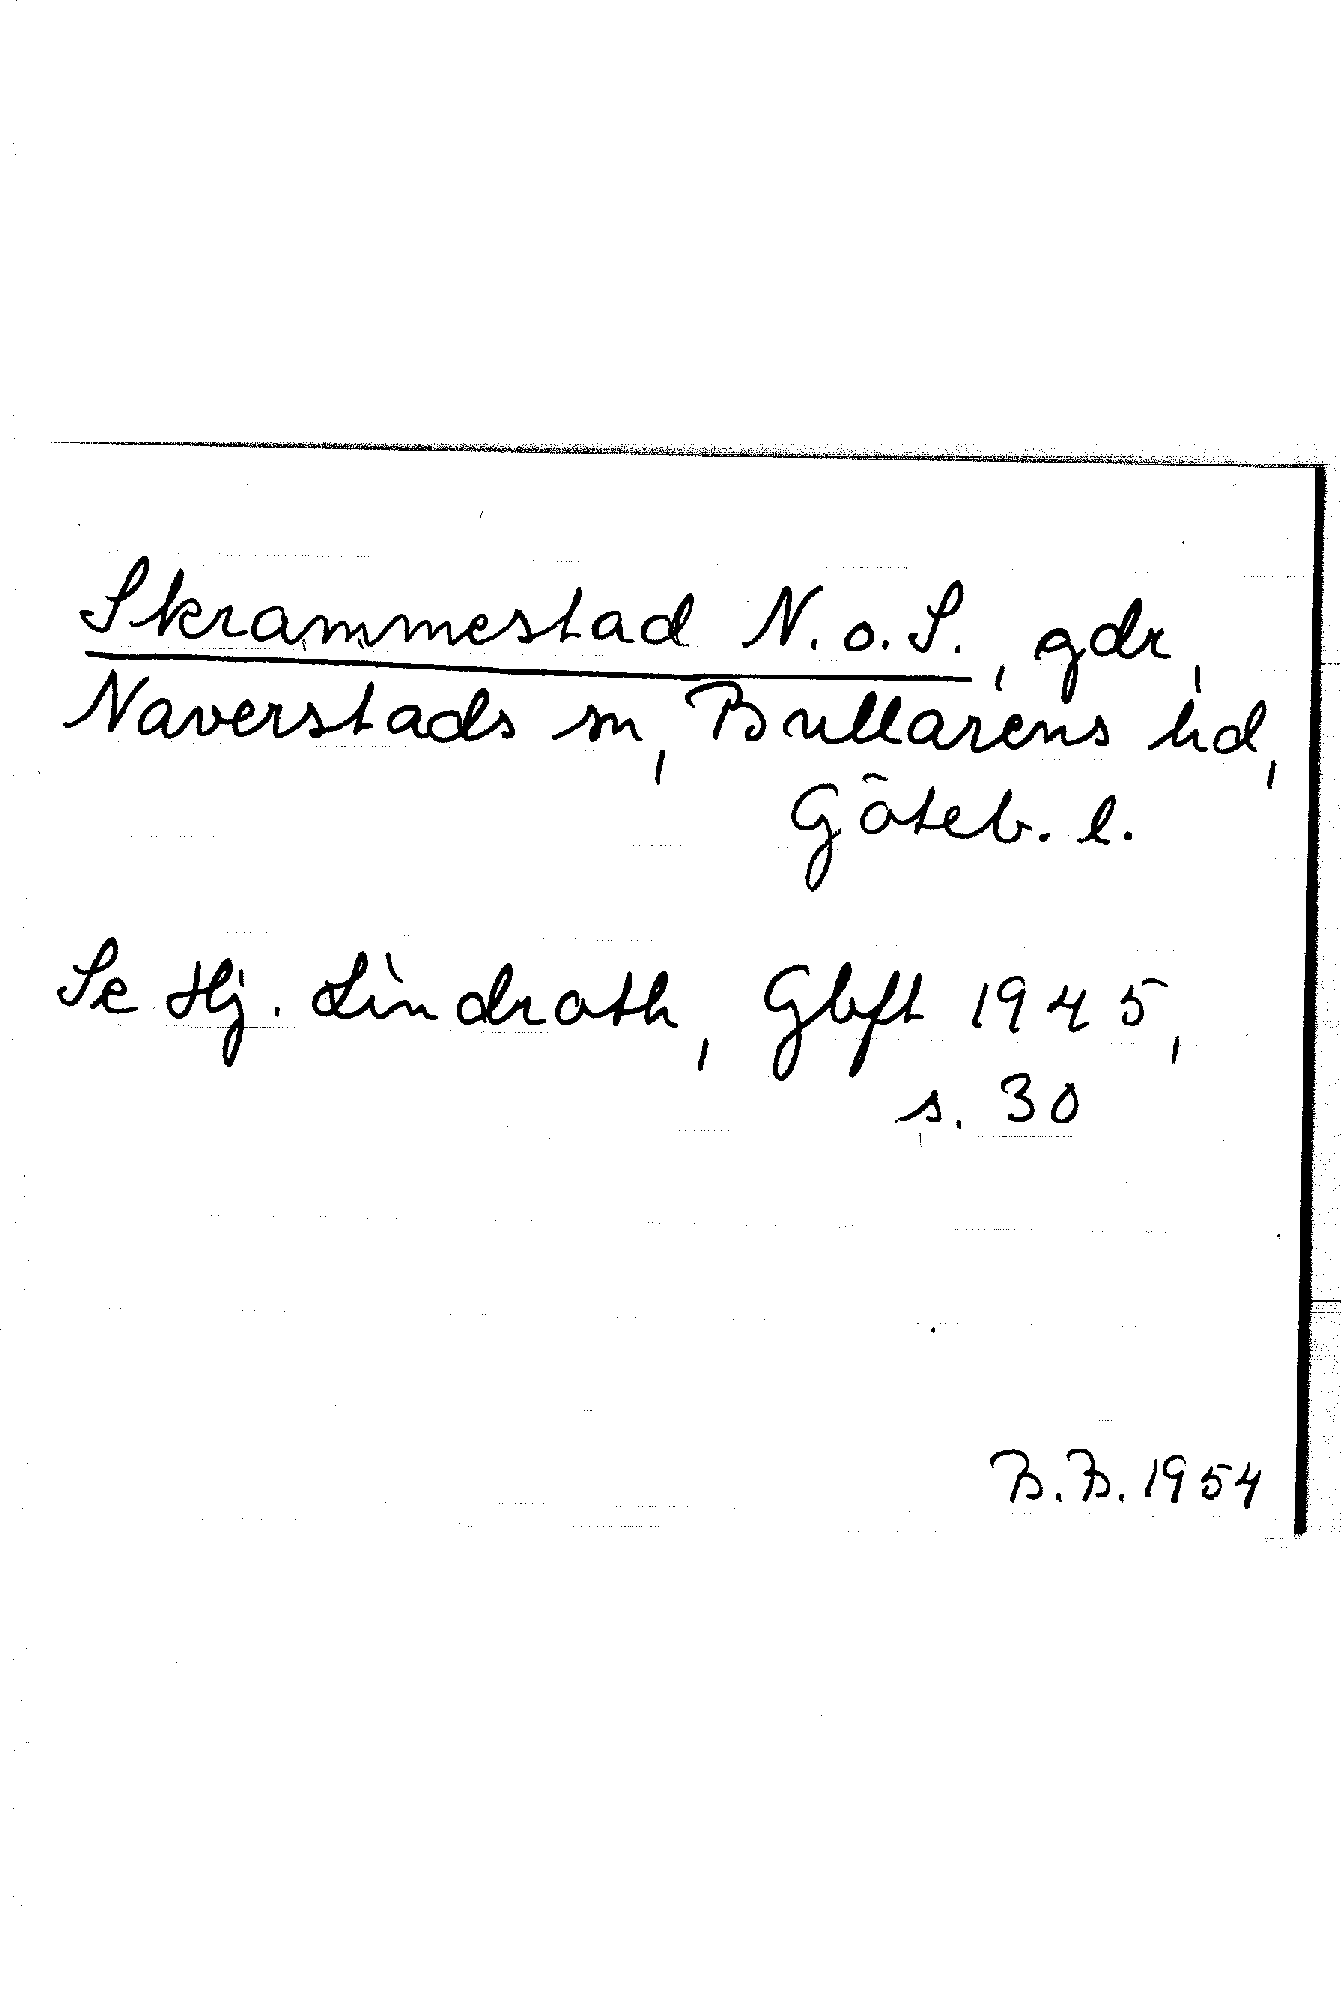 Skrammestad N. o. S., gdr,
Naverstads sn, Bullarens hd,
Göteb. l.
Se Hj. Lindroth, Gbft 1945,
s. 30
B.B. 1954